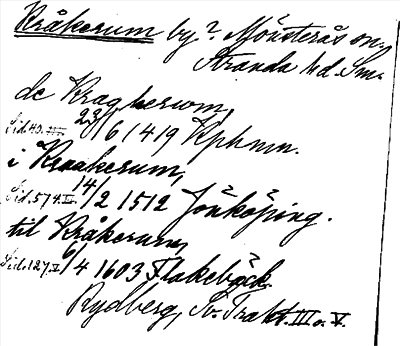 Kråkerum by? Mönsterås sn.
Stranda hd. Sm.
de Kragherwm,
Sid. 40. III. 23/6 1419 Kphmn.
i Kraakerum,
Sid. 574. III. 14/2 1512 Jönköping.
til Kråkerum,
Sid. 127. V 6/4 1603 Flakebäck.
Rydberg, Sv. Trakt. III o. V.